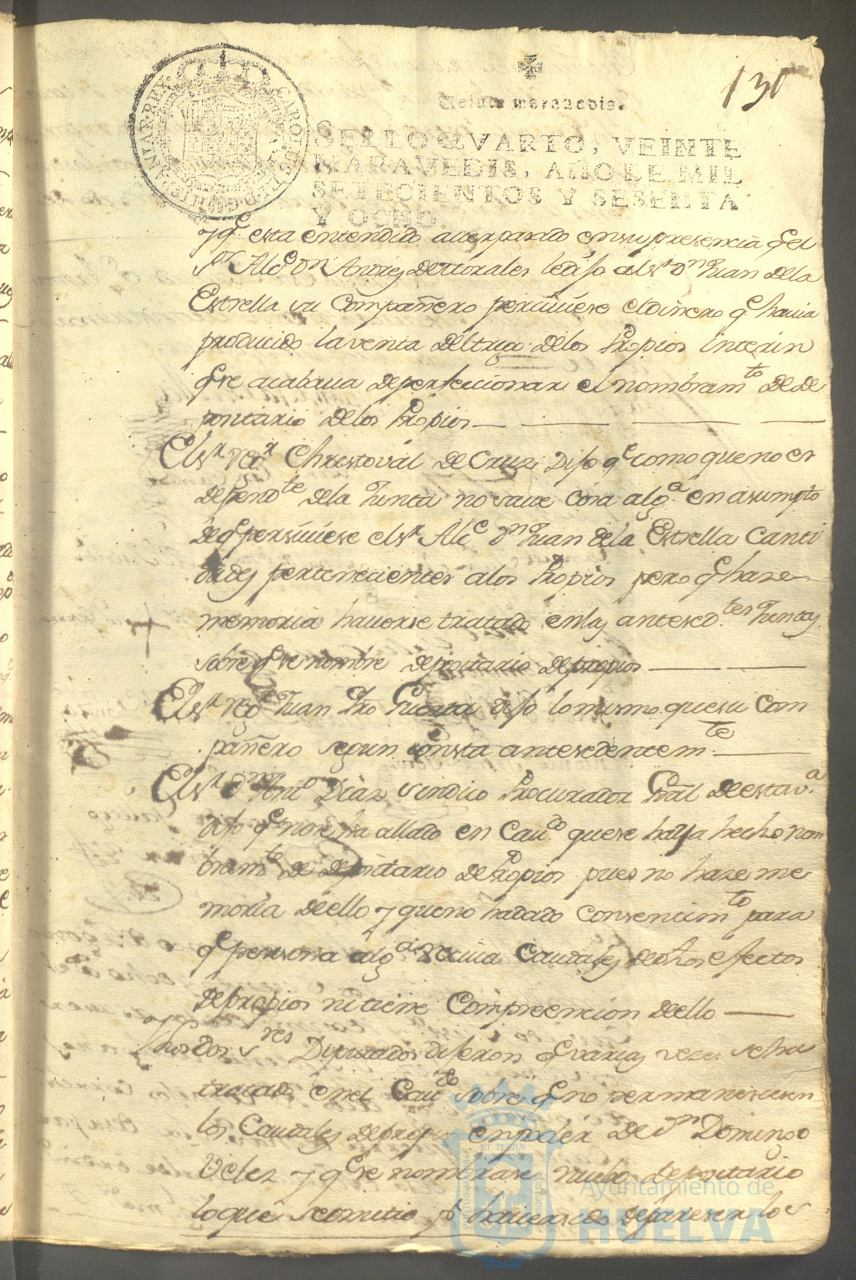 130
Veinte maravedis.
CAROLUS III D G HISPANIAR REX
SELLO QVARTO, VEINTE
MARAVEDIS, AÑO DE MIL
SETECIENTOS Y SESENTA
Y OCHO.
y qe. esta entendido en su presencia qe. el
Sr. Alce. Dn. Andres de ttorrales le dijo al Sr. Dn. Juan de la
Estrella su Compañero perciuiese el dinero qe. hauia
producido la venta del trigo de los Propios interin
qe. se acabaua de perfeccionar el nombramto. de de
positario de los Propios
El Sr. Rexr. Christoval de Cruz dijo qe. como que no es
dependte. de la Junta no saue cosa alga. en asumpto
de qe. persiuiese el Sr. Alce. Dn. Juan de la Estrella Canti
dades pertenecientes a los Propios pero qe. haze
memoria hauerse tratado en las antesedtes. Juntas
sobre qe. se nombre depositario de propios
El Sr. Rexr. Juan Pro Guerra dijo lo mismo que su Com
pañero segun consta antesedentemte.
El Sr. Dn. Anto. Diaz Sindico Procurador Gral de esta va.
dijo qe. no se ha allado en Cauo. que se haya hecho nom
bramto. de depositario de Propios pues no haze me
moria de ello y que no ha dado consentimto. para
qe. persona alga. reciua Caudales de dhos efectos
de propios ni tiene Compreencion de ello
Dhos dos Sres. Diputados dijeron qe. varias veces se ha
tratado en el Cauo. sobre qe. no permanesiesen
los Caudales de propios en poder de Dn. Domingo
Velez y qe. se nombrase nuebo depositario
lo que se cometio pr. hauerse de pareser los
Ayuntamiento de
HUELVA